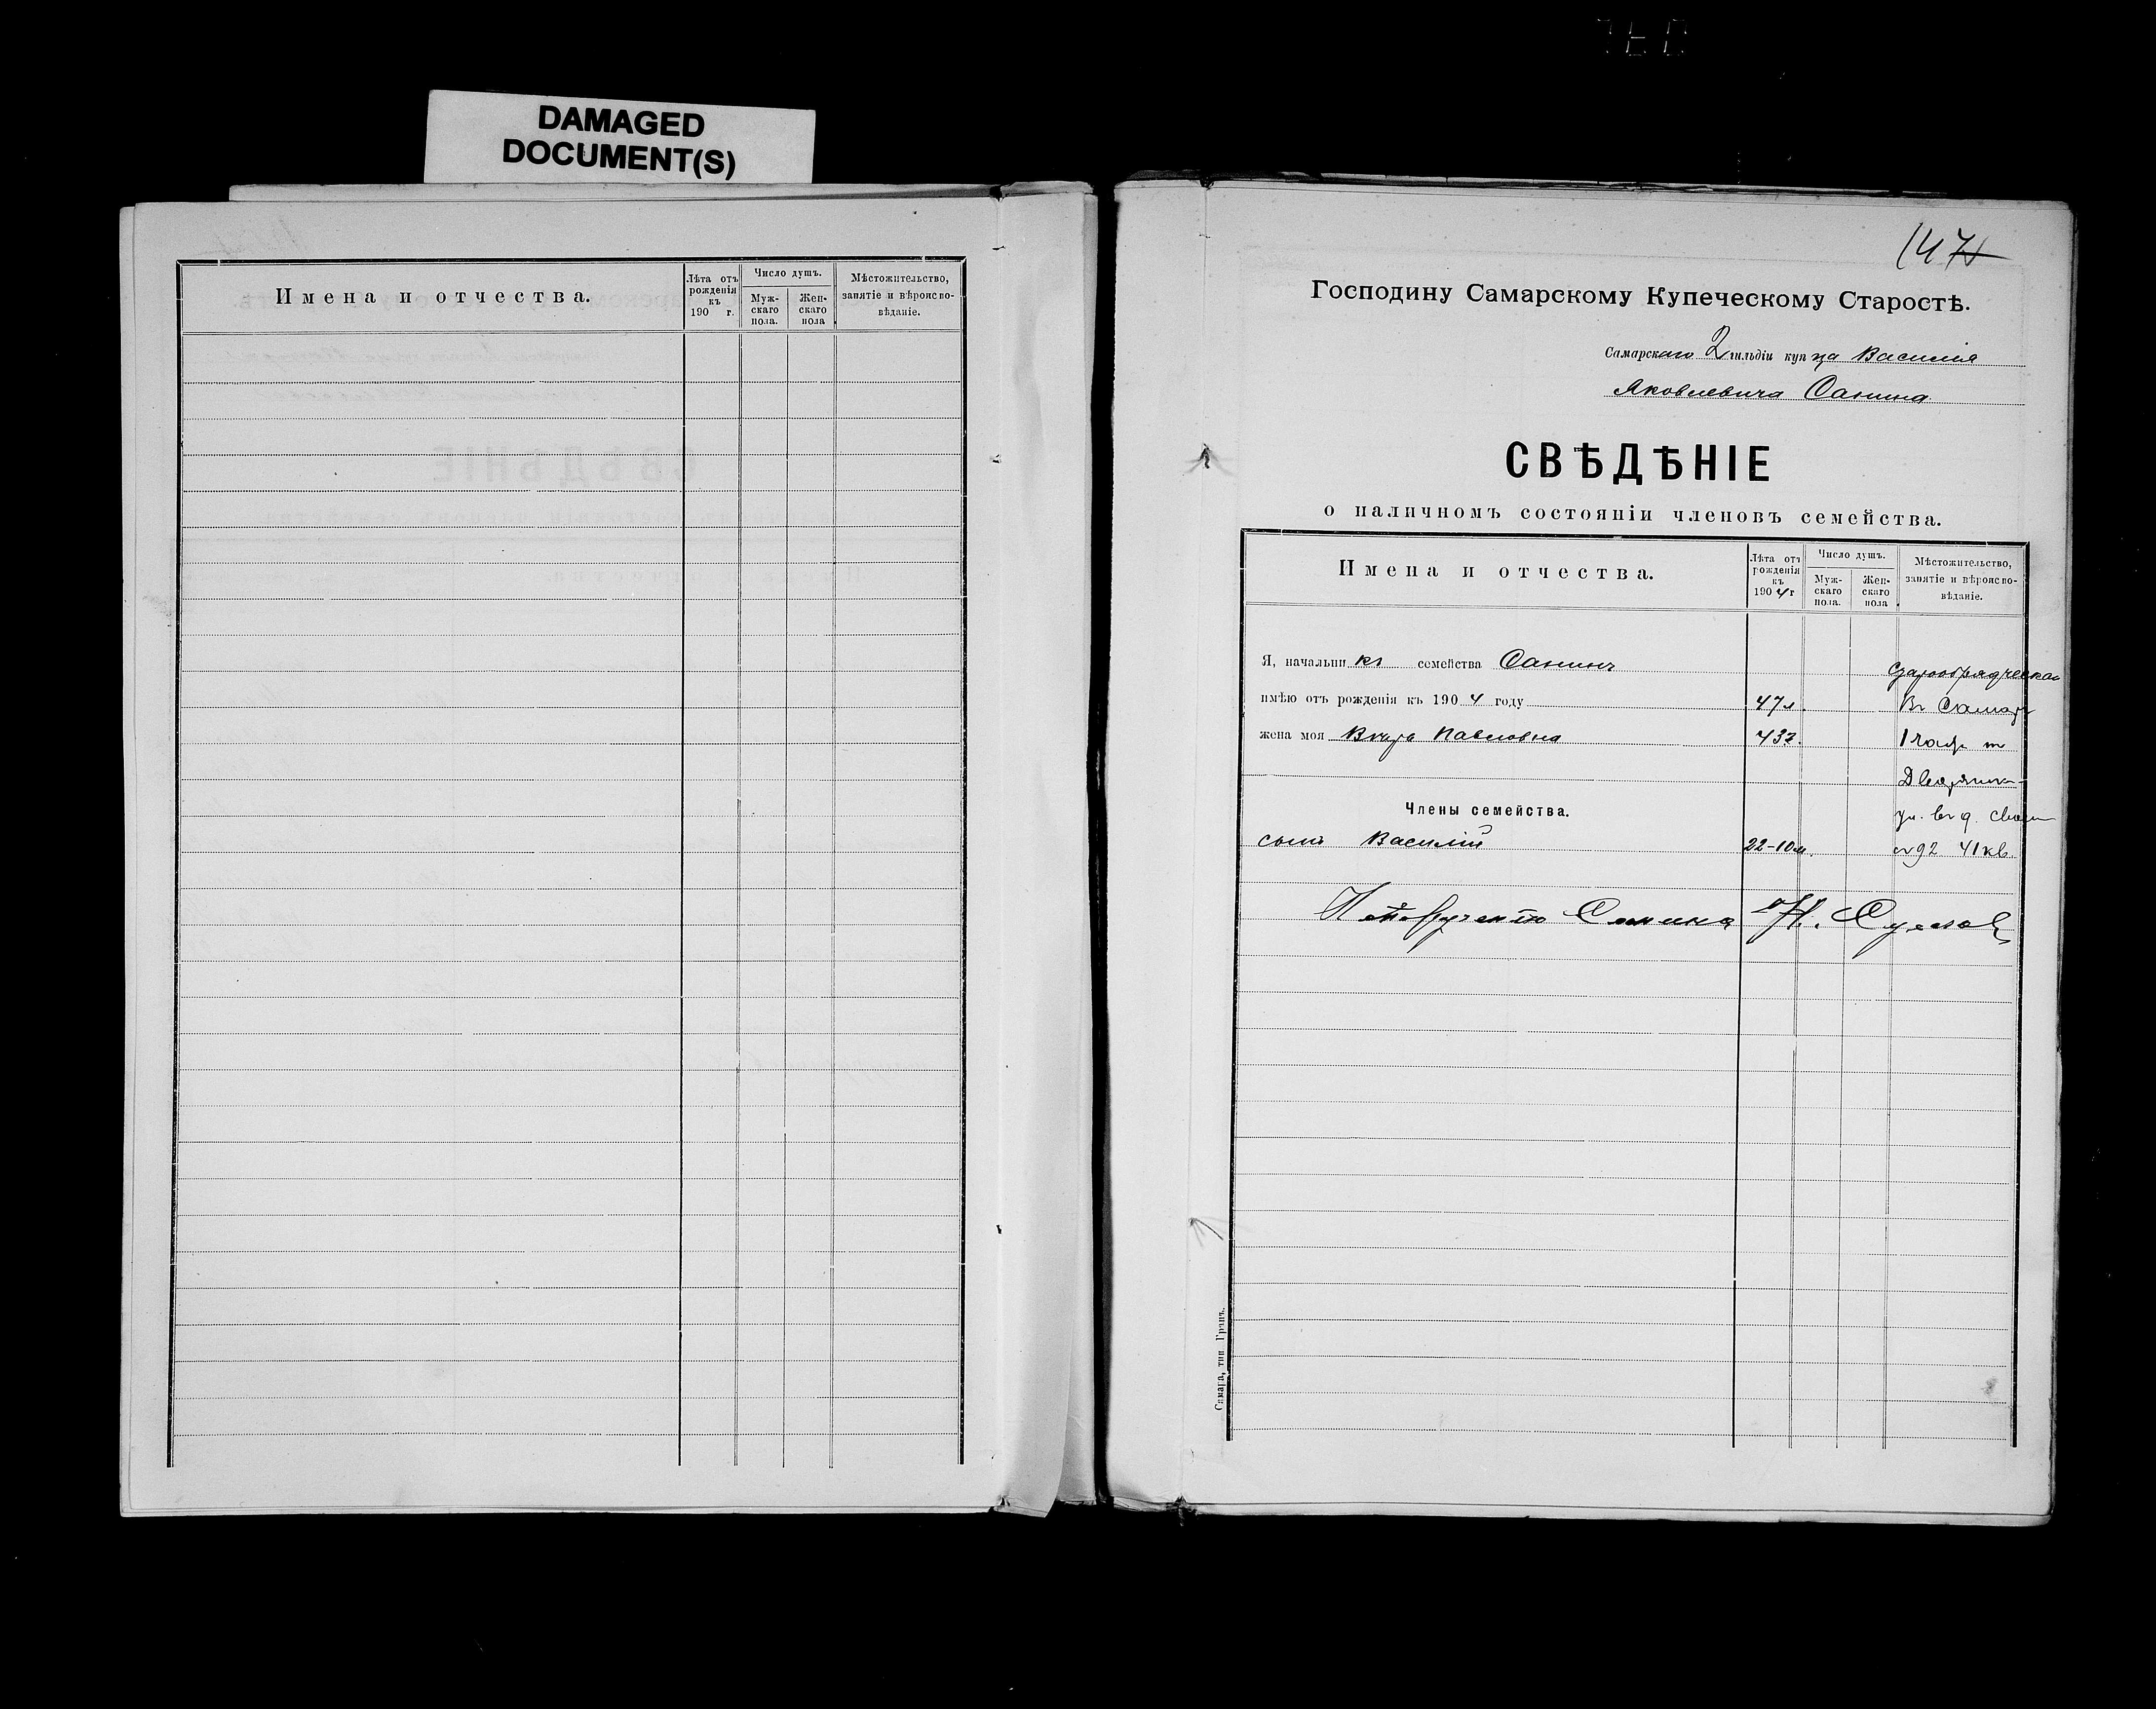 DAMAGED
DOCUMENT(S)
Имена и отчества.
Лѣта отъ рожденія къ 190 г.
Число душъ.
Мужскаго пола.
Женскаго пола
Мѣстожительство, занятіе и вѣроисповѣданіе.
147
Господину Самарскому Купеческому Старостѣ.
Самарскаго 2 гильдіи купца Василія
Яковлевича Санина
СВѢДѢНІЕ
о наличномъ состояніи членовъ семейства.
Имена и отчества.
Лѣта отъ рожденія къ 1904 г
Число душъ.
Мужскаго пола.
Женскаго пола
Мѣстожительство, занятіе и вѣроисповѣданіе.
Я, начальникъ семейства Санинъ
старообрядческая
имѣю отъ рожденія къ 1904 году 47 л. Въ Самарѣ
жена моя Вѣра Павловна 43 г. 1 части
Дворянск
Члены семейства.
ул. въ д.
сынъ Василій 22-10 м. 92 41 кв.
По порученію Санина Н.
Самара, тип. Гранъ.